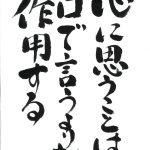 心に思うことは
口で言うより
作用する